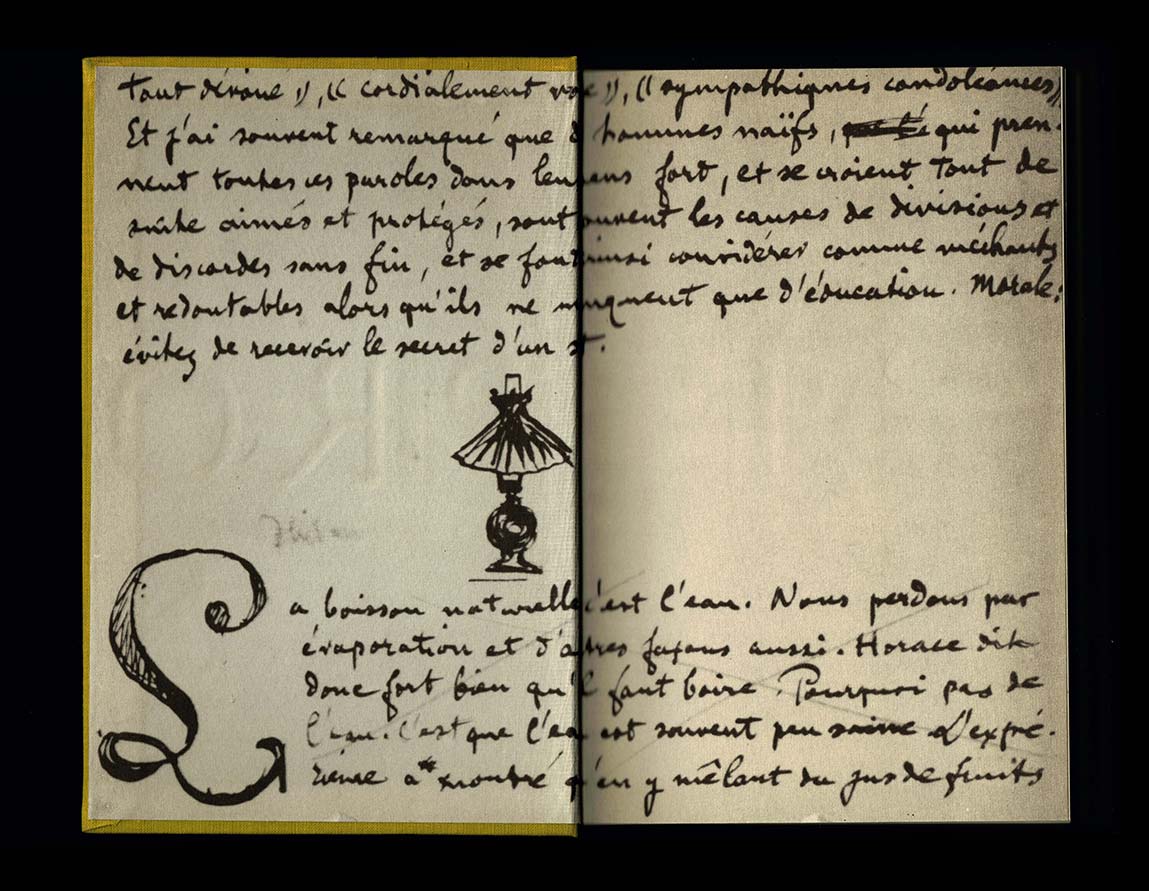 tout dévoué », « cordialement vô e », « sympathiques condoléances »
Et j'ai souvent remarqué que d hommes naïfs, qui pren-
nent toutes ces paroles dans leu sens fort, et se croient tout de
suite aimés et protégés, sont souvent les causes de divisions et
de discordes sans fin, et se font ainsi considérer comme méchants
et redoutables alors qu'ils ne manquent que d'éducation. Morale:
évitez de recevoir le secret d'un s t.
La boisson naturelle c'est l'eau. Nous perdons par
évaporation et d'autres façons aussi. Horace dit
donc fort bien qu'il faut boire. Pourquoi pas de
l'eau. C'est que l'eau est souvent peu saine. L'expé-
rience a montré qu'en y mêlant du jus de fruits